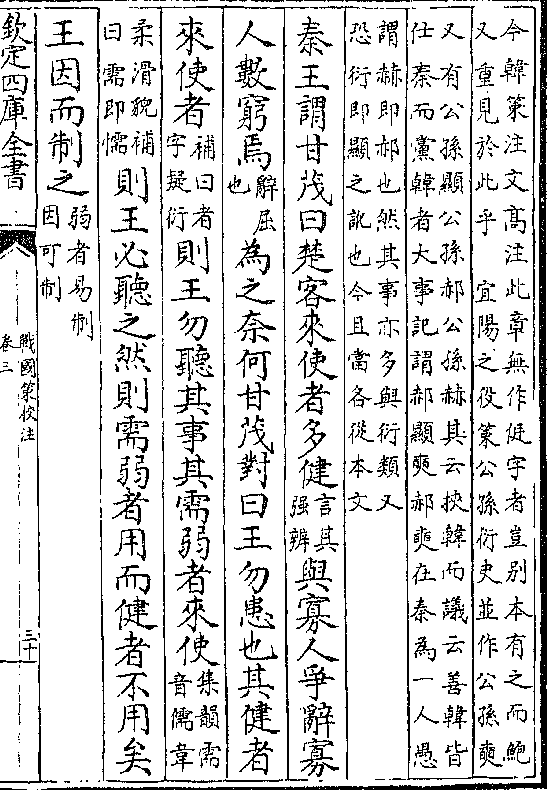 今韓策注文高注此章無作促字者豈别本有之而鮑
又重見於此乎　宜陽之役策公孫衍史並作公孫奭
又有公孫顯公孫郝公孫赫其云挾韓而議云善韓皆
仕秦而黨韓者大事記謂郝顯奭郝奭在秦為一人愚
謂赫即郝也然其事亦多與衍類又
恐衍即顯之訛也今且當各從本文
秦王謂甘茂曰楚客來使者多健言其强辨與寡人爭辭寡
人數窮焉辭屈也為之奈何甘茂對曰王勿患也其健者
來使者補曰者字疑衍則王勿聽其事其需弱者來使集韻需音儒韋
柔滑貌補曰需即懦則王必聽之然則需弱者用而健者不用矣
王因而制之弱者易制因可制
欽定四庫全書
戰國策校注
卷三
三十